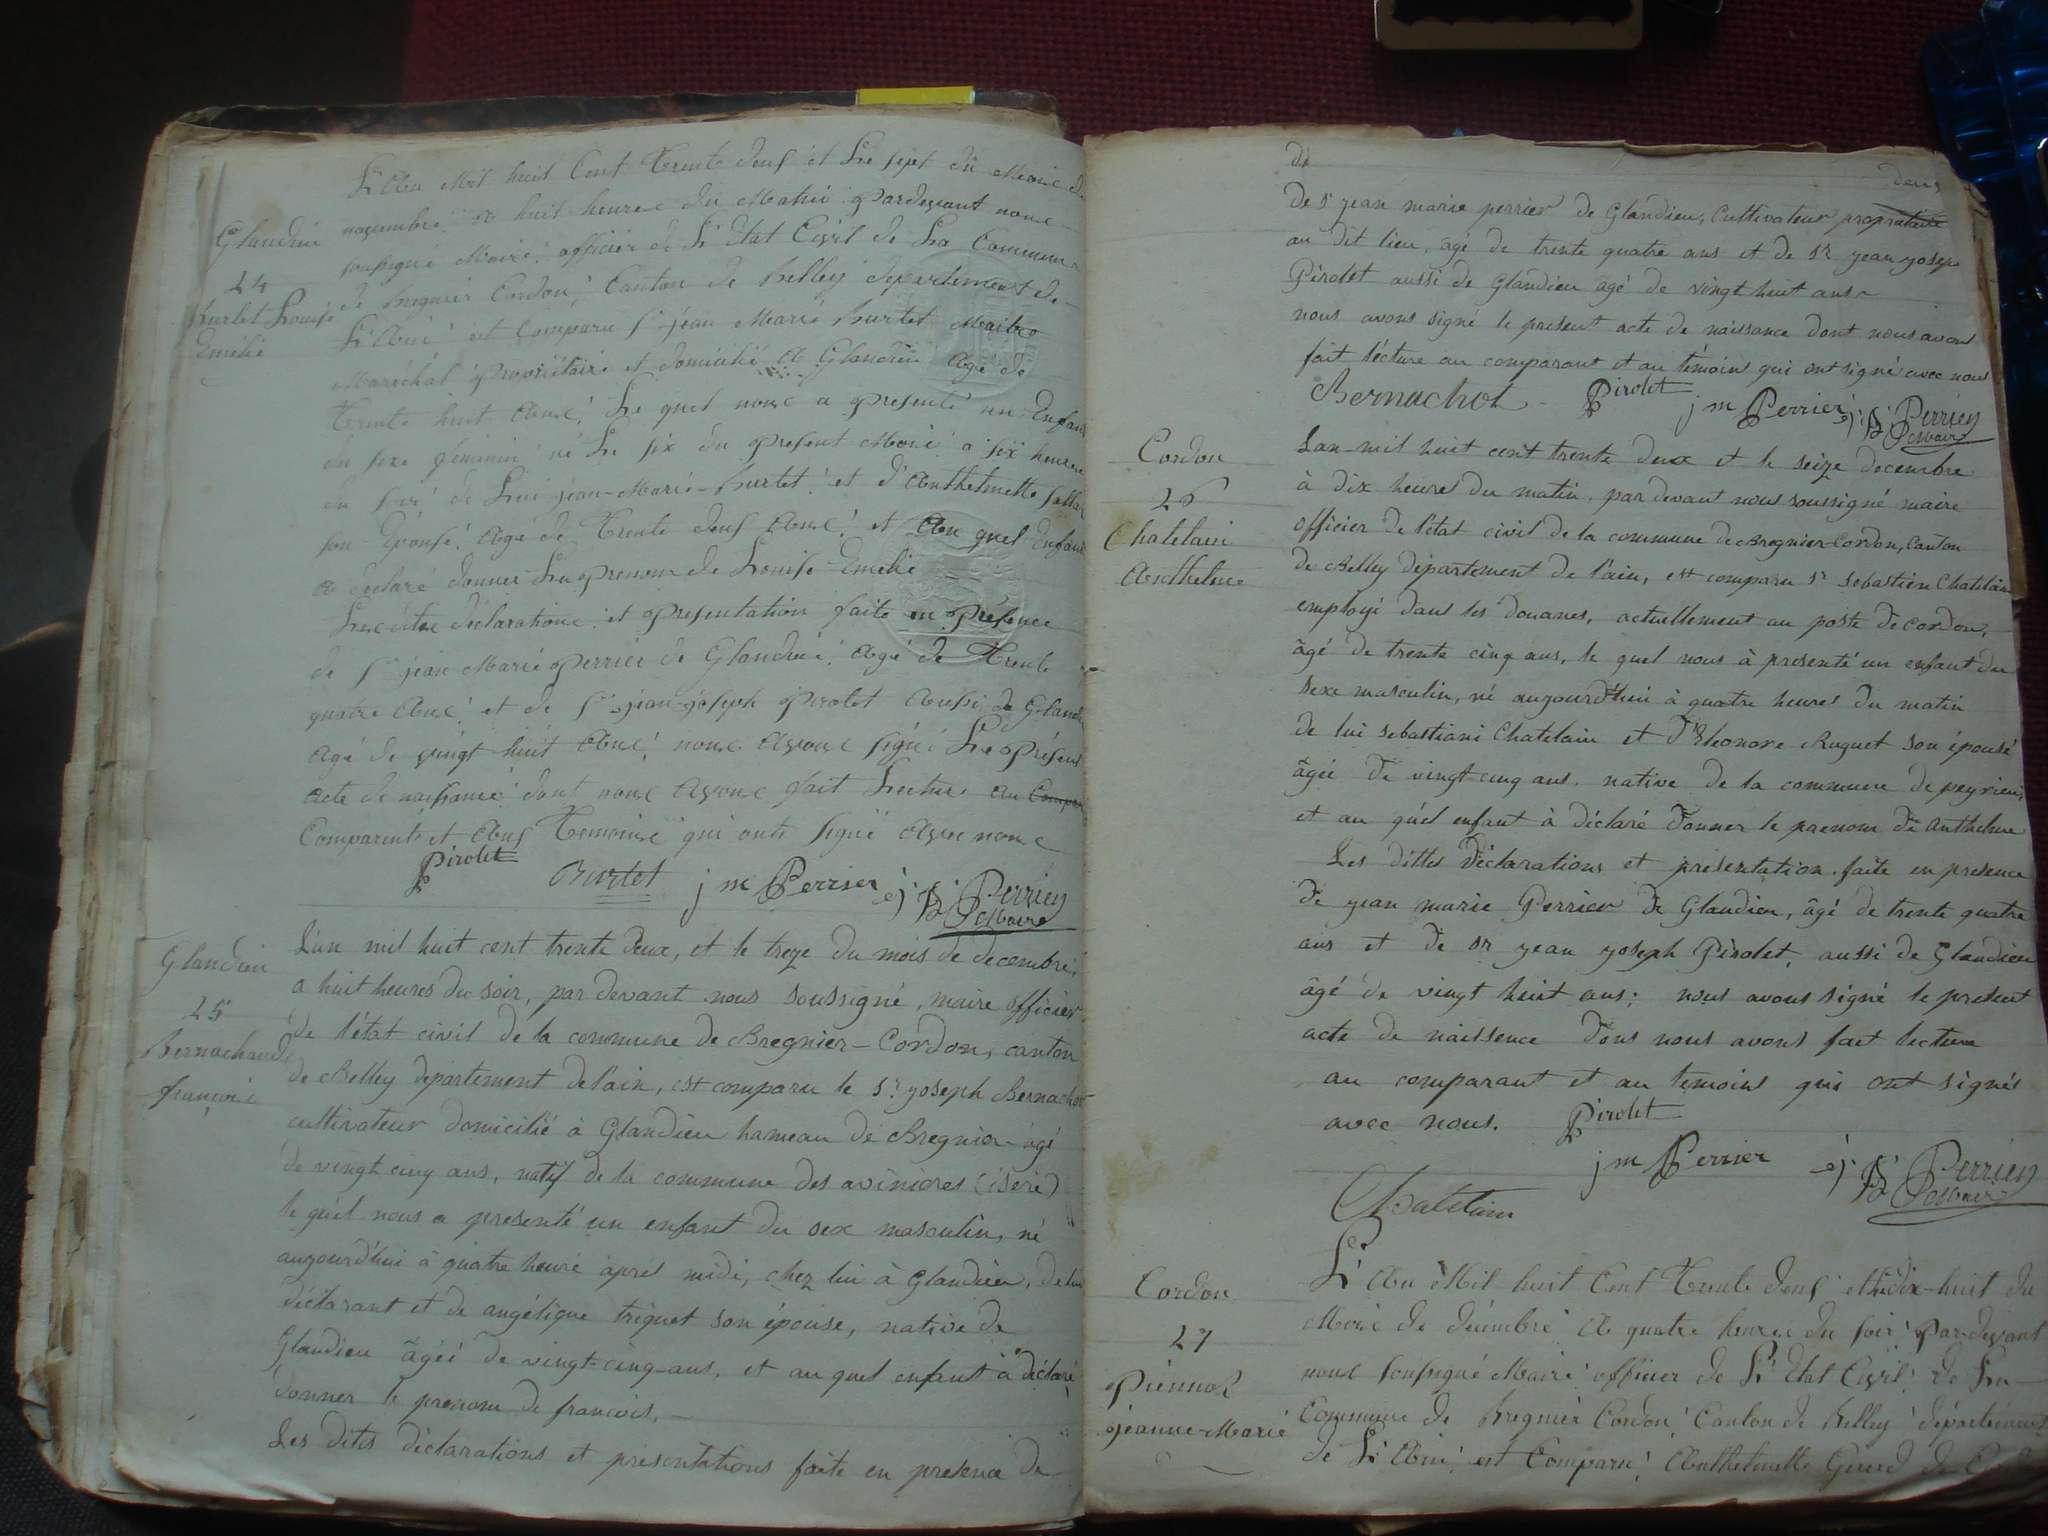 L'An Mil huit Cent Trente deux et Le sept du Mois de
Glandieu
novembre a huit heures du Matin pardevant nous
soussigné Maire officier de L'État Civil de La Commune
24
de Bregnier Cordon, Canton de Belley département de
Burtet Louise
Emélie
L'Ain est Comparu Sr jean Marie Burtet Maitre
Maréchal propriétaire et domicilié a Glandieu Agé de
Trente huit Ans, Le quel nous a presenté un Enfant
du sexe feminin né Le six du present Mois a six heures
du soir de Lui jean-Marie Burtet et d'Anthelmette
son Épouse Agé de Trente deux Ans, et Au quel Enfant
a déclaré donner Le prenom de Louise Emélie
Les dites déclarations et presentation faite en présence
de Sr jean Marie perrier de Glandieu Agé de Trente
quatre Ans et de Sr jean-joseph pirolet Aussi de
Agé de vingt huit Ans, nous Avons signé Le présent
acte de naissance dont nous Avons fait Lecture au
Comparents et Aux Temoins qui onts signé Avec nous
Pirolet
Burtet j m Perrier j. B. Perrier
Maire
Glandieu
L'an mil huit cent trente deux, et le treze du mois de decembre,
a huit heures du soir, par devant nous soussigné, maire officier
25
de l'état civil de la commune de Bregnier-Cordon, canton
Bernachaud
de Belley departement de l'ain, est comparu le Sr. yoseph Bernachot
françois
cultivateur domicilié à Glandieu hameau de Bregnier agé
de vingt cinq ans, natif de la commune des avinieres (isere)
le quel nous a presenté un enfant du sex masculin, né
aujourd'hui à quatre heure après midi, chez lui à Glandieu, de lui
déclarant et de angélique triquet son épouse, native de
Glandieu âgéé de vingt-cinq-ans, et au quel enfant à déclaré
donner le prenom de francois.
Les dites déclarations et présentations faite en presence de
deux
De Sr yean marie perrier de Glandieu, Cultivateur propriétaire
au dit lieu, agé de trente quatre ans et de Sr yean yoseph
Pirolet aussi de Glandieu âgé de vingt huit ans
nous avons signé le present acte de naissance dont nous avons
fait lécture au comparant et au témoins qui ont signé avec nous
Bernachot Pirolet j m Perrier j. B. Perrier
Maire
Cordon
Lan mil huit cent trente deux et le seize decembre
à dix heures du matin, par devant nous soussigné maire
26
officier de l'état civil de la commune de Bregnier-Cordon, canton
Chatelain
Anthelme
de Belley département de l'ain, est comparu Sr Sebastien Chatelain
employé dans les douanes, actuellement au poste de cordon,
âgé de trente cinq ans, le quel nous à presenté un enfant du
sexe masculin, né aujourd'hui à quatre heures du matin
de lui sebastiani Chatelain et d'Eleonore Ruguet son épouse
âgée de vingt cinq ans, native de la commune de peyrieu,
et au quél enfant à déclaré donner le prenom de anthelme
Les dittes déclarations et présentation faite en presence
de yean marie Perrier de Glandieu, âgé de trente quatre
ans et de Sr yean yoseph Pirolet, aussi de Glandieu
âgé de vingt huit ans; nous avons signé le present
acte de naissence dont nous avons fait lecture
au comparant et au temoins qui ont signés
avec nous. Pirolet
j m Perrier j. B. Perrier
Maire
Chatelain
L'An Mil huit Cent Trente deux et le dix-huit du
Cordon
Mois de décembre A quatre heures du soir Par-devant
27
nous soussigné Maire officier de L'État Civil de La
Piennot
jeanne-Marie
Commune de Bregnier Cordon, Canton de Belley département
de L'Ain est Comparu Anthelmette de